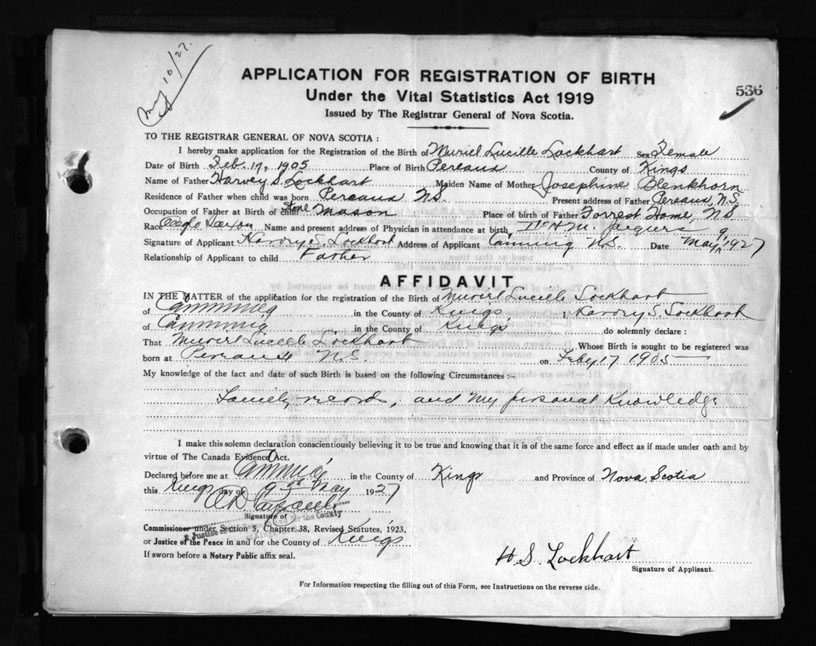 May 10/27.
APPLICATION FOR REGISTRATION OF BIRTH
536
Under the Vital Statistics Act 1919
Issued by The Registrar General of Nova Scotia.
TO THE REGISTRAR GENERAL OF NOVA SCOTIA :
I hereby make application for the Registration of the Birth of Muriel Lucille Lockhart Sex Female
Date of Birth Feb. 17, 1905 Place of Birth Pereaux County of Kings
Name of Father Harvey S. Lockhart Maiden Name of Mother Josephine Blenkhorn
Residence of Father when child was born Pereaux N.S. Present address of Father Pereaux, N.S.
Occupation of Father at Birth of child Stone Mason Place of birth of Father Forrest Home, N.S.
Race Anglo Saxon Name and present address of Physician in attendance at birth, Dr H. M. Jaques
Signature of Applicant Harvey S. Lockhart Address of Applicant Canning N.S. Date May 9, 1927
Relationship of Applicant to child Father
AFFIDAVIT
IN THE MATTER of the application for the registration of the Birth of Muriel Lucille Lockhart
of Canning in the County of Kings, I, Harvey S. Lockhart
of Canning in the County of Kings do solemnly declare :
That Muriel Lucille Lockhart Whose Birth is sought to be registered was
born at Pereaux N.S. on Feby 17 1905
My knowledge of the fact and date of such Birth is based on the following Circumstances :-
Family records, and my personal Knowledge
I make this solemn declaration conscientiously believing it to be true and knowing that it is of the same force and effect as if made under oath and by
virtue of The Canada Evidence Act.
Declared before me at Canning in the County of Kings and Province of Nova Scotia
this Kings day of 9th May 1927
Signature of
Commissioner under Section 5, Chapter 38, Revised Statutes, 1923.
or Justice of the Peace in and for the County of Kings
If sworn before a Notary Public affix seal.
H. S. Lockhart
Signature of Applicant.
For Information respecting the filling out of this Form, see Instructions on the reverse side.